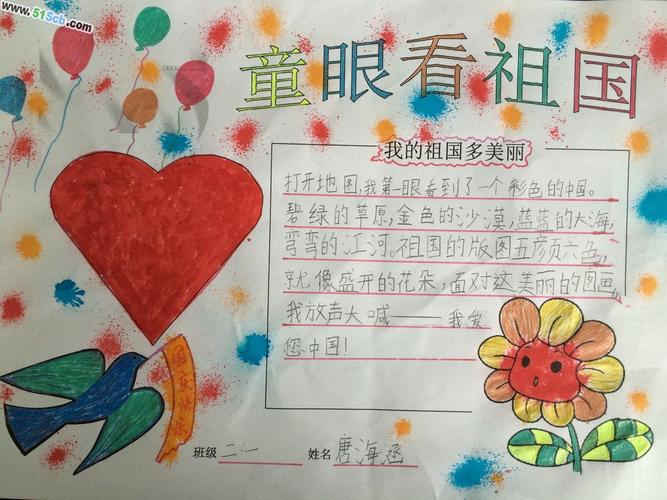 www.51Scb.com
童眼看祖国
我的祖国多美丽
打开地图,我第一眼看到了一个彩色的中国。
碧绿的草原,金色的沙漠,蓝蓝的大海,
弯弯的江河。祖国的版图五颜六色,
就像盛开的花朵,面对这美丽的图画,
我放声大喊——我爱
您中国!
国庆快乐
班级 二.一 姓名 唐海丞